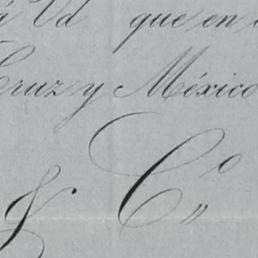 á Ud que en
Cruz y México
& Cº